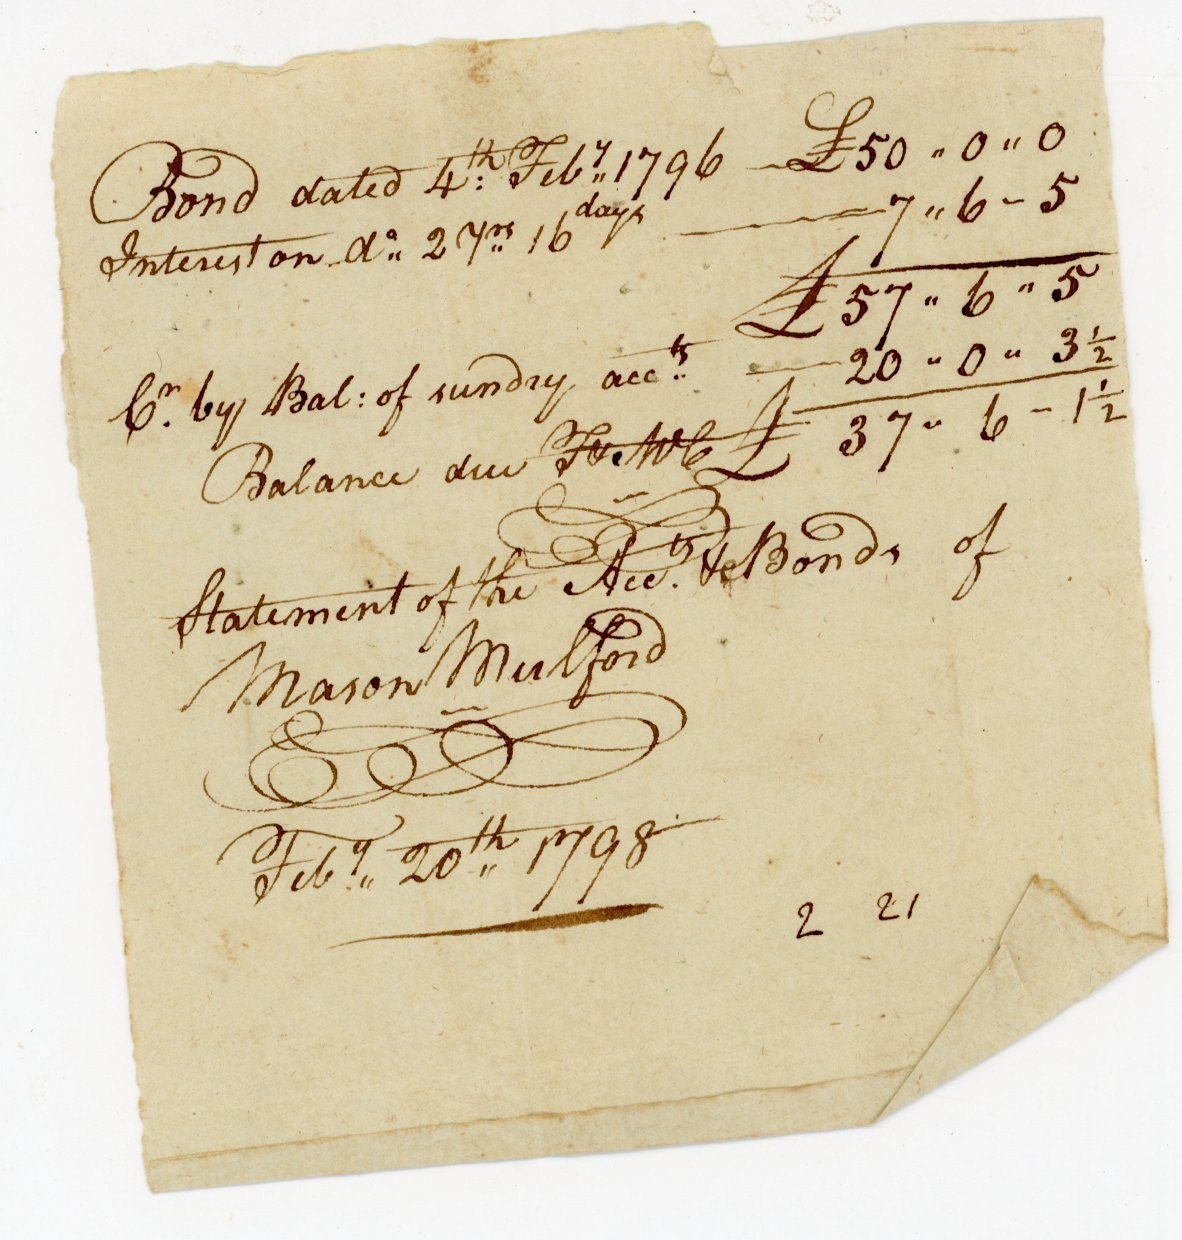 Bond dated 4th: Feby 1796 — £50 „ 0 „ 0
Interest on do „ 2 Yrs „ 16 days — 7 „ 6 - 5
£57 „ 6 „ 5
Cr. by Bal: of sundry accts — 20 „ 0 „ 3 1/2
Balance due £ 37 „ 6 - 1 1/2
Statement of the Accts. & Bonds of
Mason Mulford
Feby „ 20th „ 1798
2 21